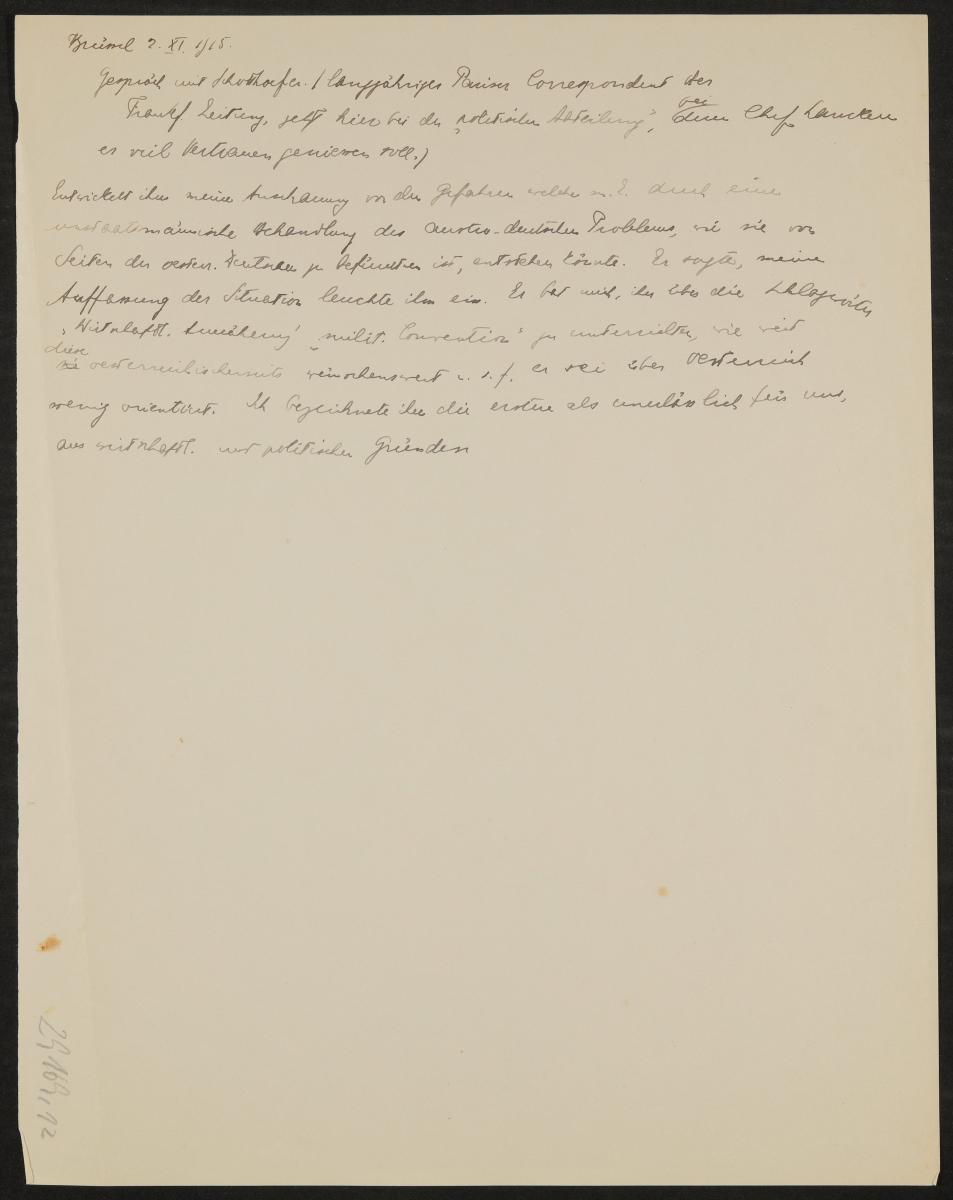 Brüssel 2. XI. 1915.
Gespräch mit Schotthoefer. (langjähriger Pariser Correspondent der
Frankf Zeitung, jetzt hier bei der „politischen Abteilung", bei deren Chef Lancken
er viel Vertrauen geniessen soll.)
Entwickelt ihm meine Anschauung von den Gefahren welche m. E. durch eine
unstaatsmännische Behandlung des austro-deutschen Problems, wie sie von
Seiten der oesterr. Deutschen zu befürchten ist, entstehen könnte. Er sagte, meine
Auffassung der Situation leuchte ihm ein. Er bat mich, ihn über die Schlagwörter
„Wirtschaftl. Annäherung" „milit. Convention" zu unterrichten, wie weit
diese oesterreichischerseits wünschenswert u. s. f. er sei über Oesterreich
wenig orientirt. Ich bezeichnete ihm die erstere als unerlässlich für uns,
aus wirtschaftl. und politischen Gründen